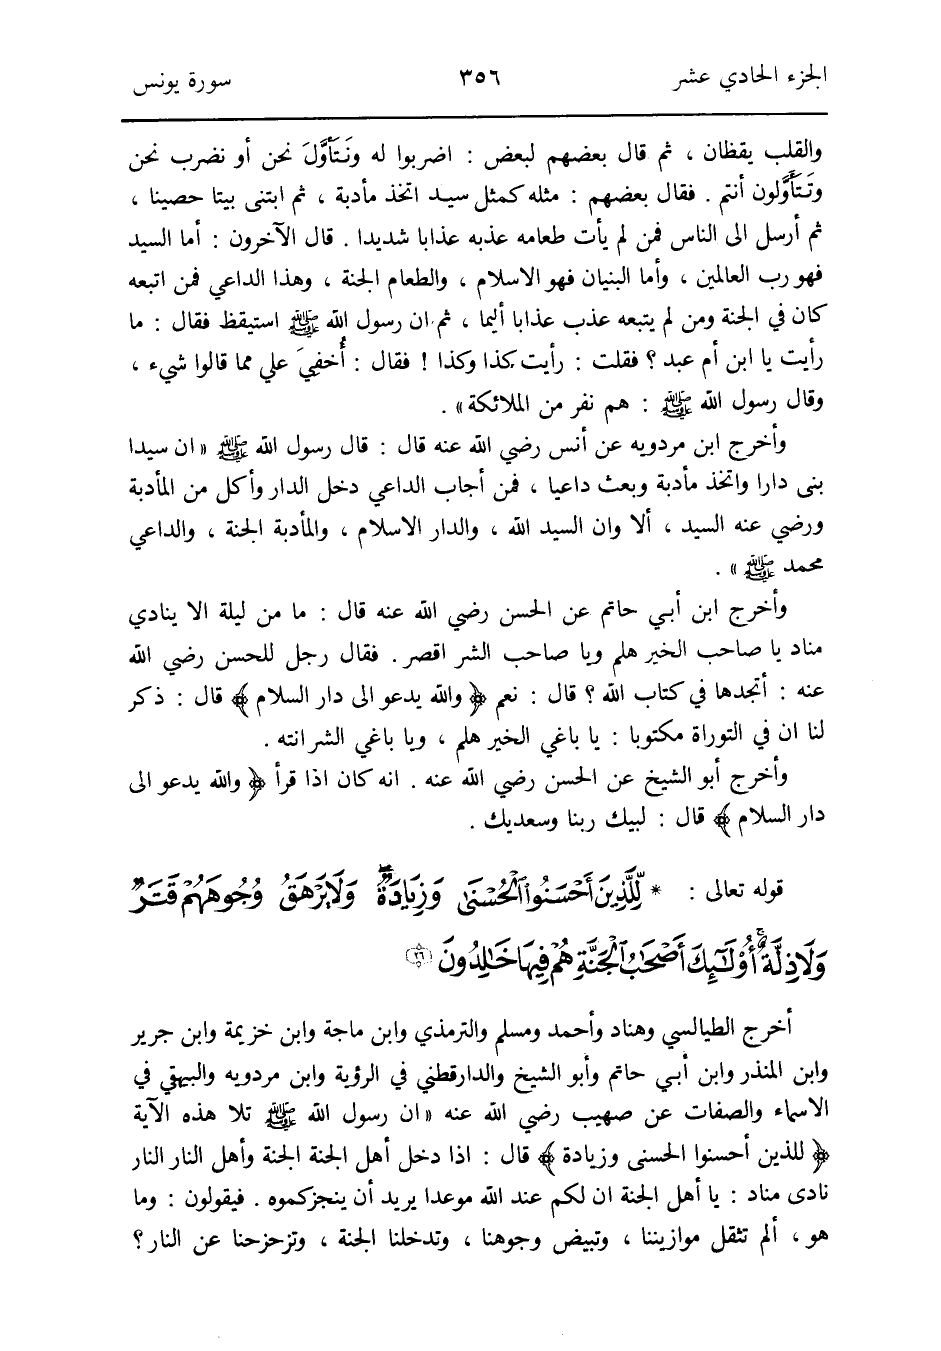 الجزء الحادي عشر ٣٥٦ سورة يونس
والقلب يقظان ، ثم قال بعضهم لبعض : اضربوا له ونَتَأَوَّلَ نحن أو نضرب نحن
وتَتَأَوَّلون أنتم . فقال بعضهم : مثله كمثل سيد اتخذ مأدبة ، ثم ابتنى بيتا حصينا ،
ثم أرسل الى الناس فمن لم يأت طعامه عذبه عذابا شديدا . قال الآخرون : أما السيد
فهو رب العالمين ، وأما البنيان فهو الاسلام ، والطعام الجنة ، وهذا الداعي فمن اتبعه
كان في الجنة ومن لم يتبعه عذب عذابا أليما ، ثم ان رسول الله ﷺ استيقظ فقال : ما
رأيت يا ابن أم عبد ؟ فقلت : رأيت كذا وكذا ! فقال : أُخفِيَ علي مما قالوا شيء ،
وقال رسول الله ﷺ : هم نفر من الملائكة» .
وأخرج ابن مردويه عن أنس رضي الله عنه قال : قال رسول الله ﷺ «ان سيدا
بنى دارا واتخذ مأدبة وبعث داعيا ، فمن أجاب الداعي دخل الدار وأكل من المأدبة
ورضي عنه السيد ، ألا وان السيد الله ، والدار الاسلام ، والمأدبة الجنة ، والداعي
محمد ﷺ» .
وأخرج ابن أبي حاتم عن الحسن رضي الله عنه قال : ما من ليلة الا ينادي
مناد يا صاحب الخير هلم ويا صاحب الشر اقصر . فقال رجل للحسن رضي الله
عنه : أتجدها في كتاب الله ؟ قال : نعم ﴿والله يدعو الى دار السلام﴾ قال : ذكر
لنا ان في التوراة مكتوبا : يا باغي الخير هلم ، ويا باغي الشر انته .
وأخرج أبو الشيخ عن الحسن رضي الله عنه . انه كان اذا قرأ ﴿والله يدعو الى
دار السلام﴾ قال : لبيك ربنا وسعديك .
قوله تعالى : * لِّلَّذِينَ أَحْسَنُوا۟ ٱلْحُسْنَىٰ وَزِيَادَةٌۖ وَلَا يَرْهَقُ وُجُوهَهُمْ قَتَرٌ
وَلَا ذِلَّةٌۚ أُو۟لَٰٓئِكَ أَصْحَٰبُ ٱلْجَنَّةِ هُمْ فِيهَا خَٰلِدُونَ ٢٦
أخرج الطيالسي وهناد وأحمد ومسلم والترمذي وابن ماجة وابن خزيمة وابن جرير
وابن المنذر وابن أبي حاتم وأبو الشيخ والدارقطني في الرؤية وابن مردويه والبيهقي في
الاسماء والصفات عن صهيب رضي الله عنه «ان رسول الله ﷺ تلا هذه الآية
﴿للذين أحسنوا الحسنى وزيادة﴾ قال : اذا دخل أهل الجنة الجنة وأهل النار النار
نادى مناد : يا أهل الجنة ان لكم عند الله موعدا يريد أن ينجزكموه . فيقولون : وما
هو ، ألم تثقل موازيننا ، وتبيض وجوهنا ، وتدخلنا الجنة ، وتزحزحنا عن النار ؟